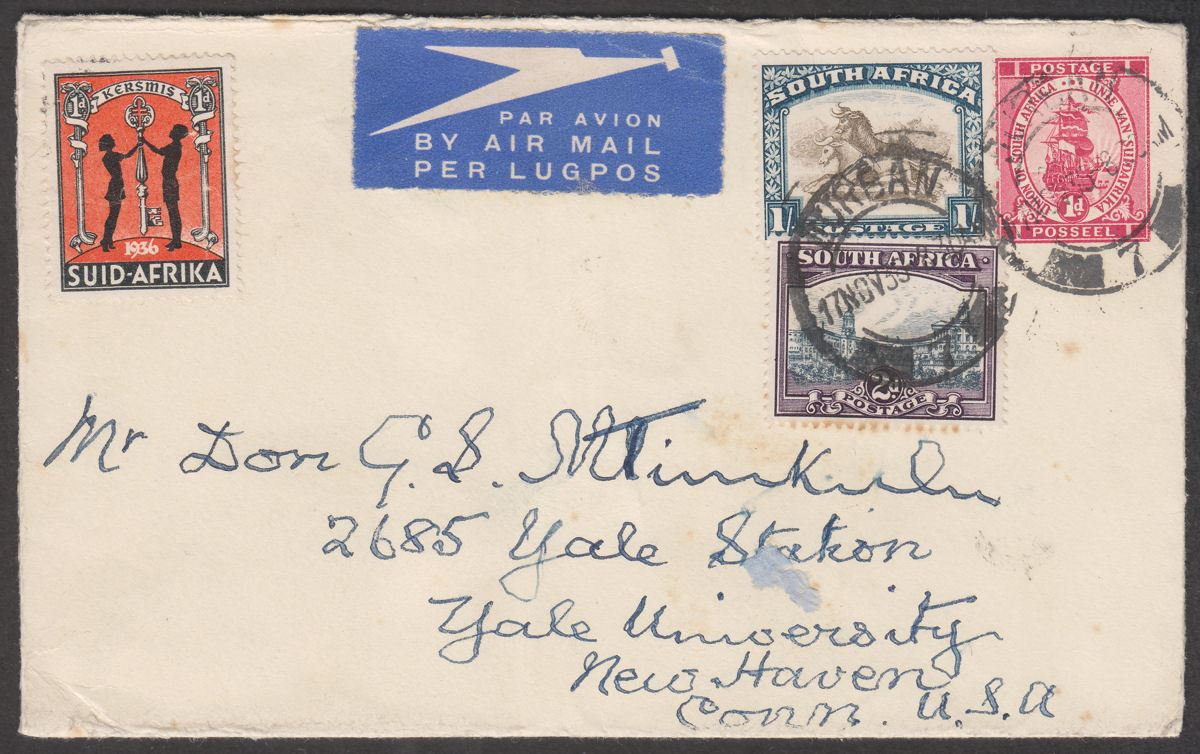 1d KERSMIS 1d
1936
SUID-AFRIKA
PAR AVION
BY AIR MAIL
PER LUGPOS
SOUTH AFRICA
1/- 1/-
POSTAGE
SOUTH AFRICA
2d
POSTAGE
1 POSTAGE 1
UNION OF SOUTH AFRICA · UNIE VAN SUIDAFRIKA
1d
POSSEEL
DURBAN
17 NOV 36
7
7
Mr Don G. S. Mtimkulu
2685 Yale Station
Yale University
New Haven
Conn. U.S.A